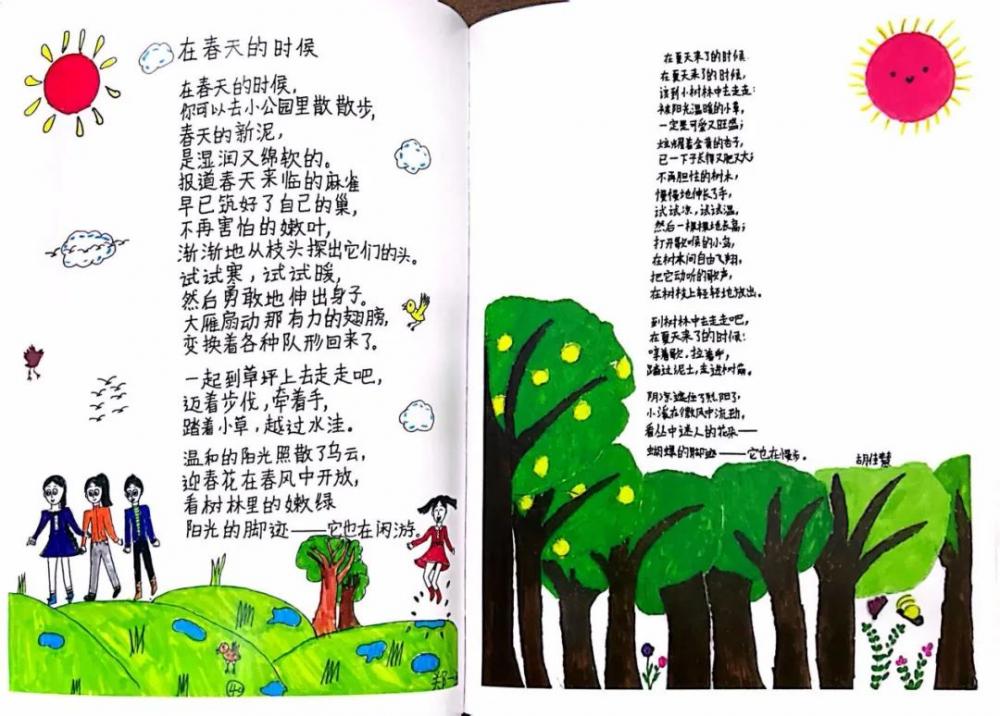 在春天的时候
在春天的时候，
你可以去小公园里散散步，
春天的新泥，
是湿润又绵软的。
报道春天来临的麻雀
早已筑好了自己的巢，
不再害怕的嫩叶，
渐渐地从枝头探出它们的头。
试试寒，试试暖，
然后勇敢地伸出身子。
大雁扇动那有力的翅膀，
变换着各种队形回来了。
一起到草坪上去走走吧，
迈着步伐，牵着手，
踏着小草，越过水洼。
温和的阳光照散了乌云，
迎春花在春风中开放，
看树林里的嫩绿
阳光的脚迹——它也在闲游。
在夏天来了的时候
在夏天来了的时候，
该到小树林中去走走：
被阳光温暖的小草，
一定是可爱又旺盛；
炫耀着金黄的杏子，
已一下子长得又肥又大；
不再胆怯的树木，
慢慢地伸长了手，
试试凉，试试温，
然后一棵棵地长高；
打开歌喉的小鸟，
在树木间自由飞翔，
把它动听的歌声，
在树枝上轻轻地放出。
到树林中去走走吧，
在夏天来了的时候：
哼着歌，拉着手，
踏过泥土，走进树荫。
阴凉遮住了太阳，
小溪在微风中流动，
看丛中迷人的花朵——
蝴蝶的脚迹——它也在慢步。
胡佳慧